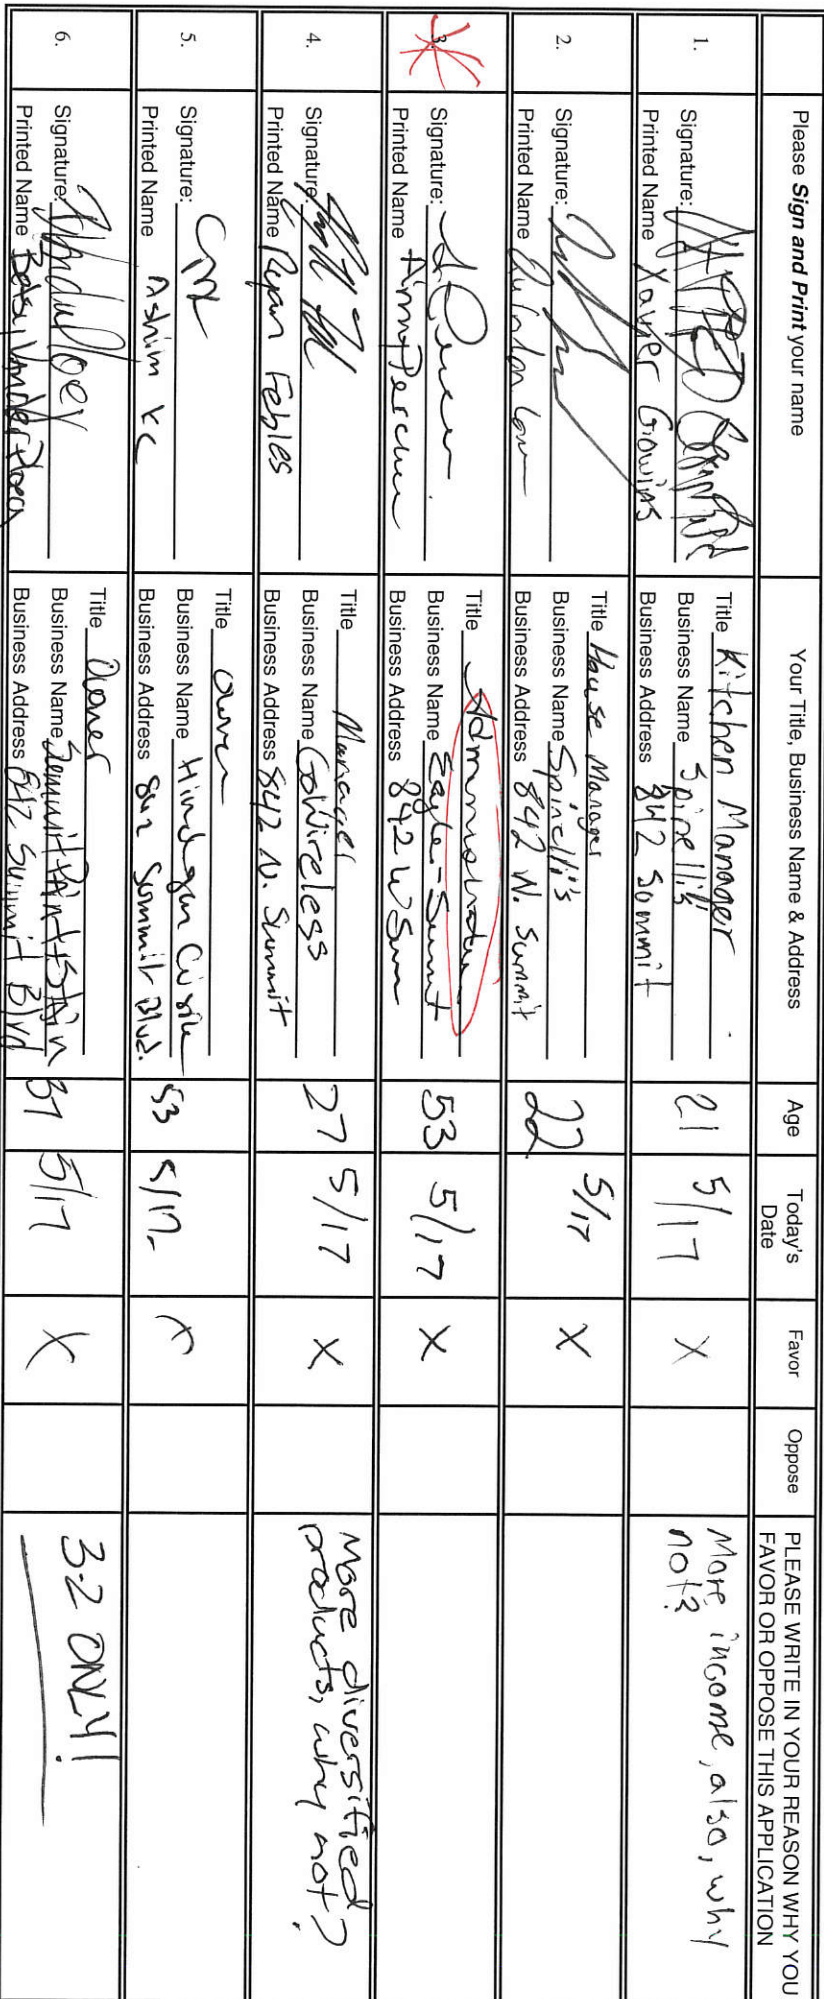 Please Sign and Print your name
Your Title, Business Name & Address
Age
Today's
Date
Favor
Oppose
PLEASE WRITE IN YOUR REASON WHY YOU
FAVOR OR OPPOSE THIS APPLICATION
1.
Signature:
Printed Name Xavier Gowins
Title Kitchen Manager
Business Name Spinelli's
Business Address 842 Summit
21
5/17
X
More income, also, why
not?
2.
Signature:
Printed Name Quinton
Title House Manager
Business Name Spinelli's
Business Address 842 N. Summit
22
5/17
X
3.
Signature:
Printed Name
Title Administrator
Business Name Eagle-Summit
Business Address 842 W Summ
53
5/17
X
4.
Signature:
Printed Name Ryan Febles
Title Manager
Business Name GoWireless
Business Address 842 N. Summit
27
5/17
X
More diversified
products, why not?
5.
Signature:
Printed Name Ashim KC
Title Owner
Business Name Himalayan Cuisine
Business Address 842 Summit Blvd.
53
5/17
X
6.
Signature:
Printed Name Betsi VanderHoek
Title Owner
Business Name Summit Paint & Stain
Business Address 842 Summit Blvd
37
5/17
X
3.2 ONLY!